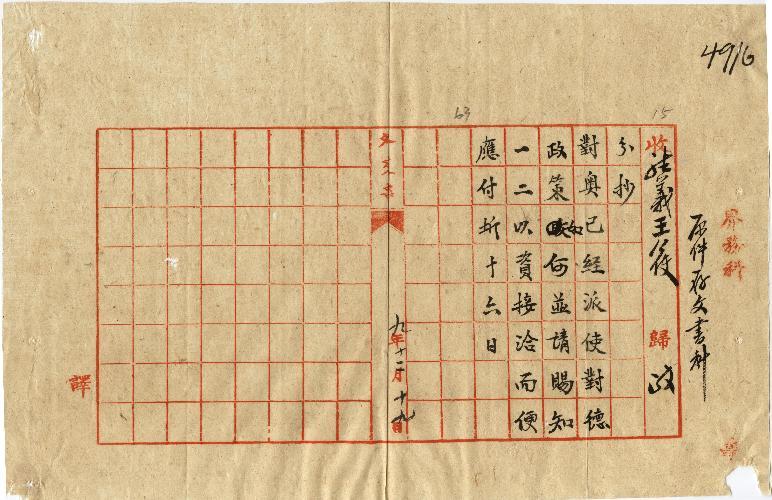 4916
原件存文書科
15
收駐義王使 歸政
分抄
對奧已經派使對德
政策如何並請賜知
一二以資接洽而便
63
應付圻十六日
外交部
九年十二月十九日
譯